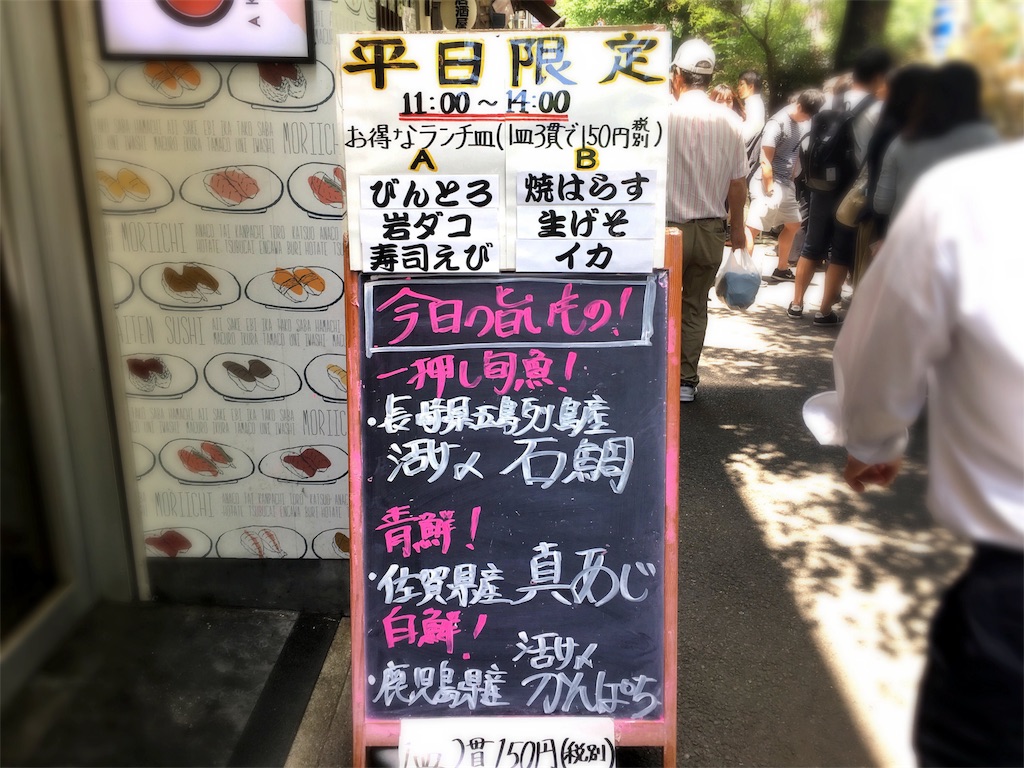 平日限定
11:00〜14:00
お得なランチ皿(1皿3貫で150円税別)
A
びんとろ
岩ダコ
寿司えび
B
焼はらす
生げそ
イカ
今日の旨いもの!
一押し旬魚!
・長崎県五島列島産
活〆 石鯛
青鮮!
・佐賀県産 真あじ
白鮮!
・鹿児島県産 活〆かんぱち
貫150円(税別)
MORIICHI
MORIICHI
KAITEN SUSHI
MORIICHI
MORIICHI